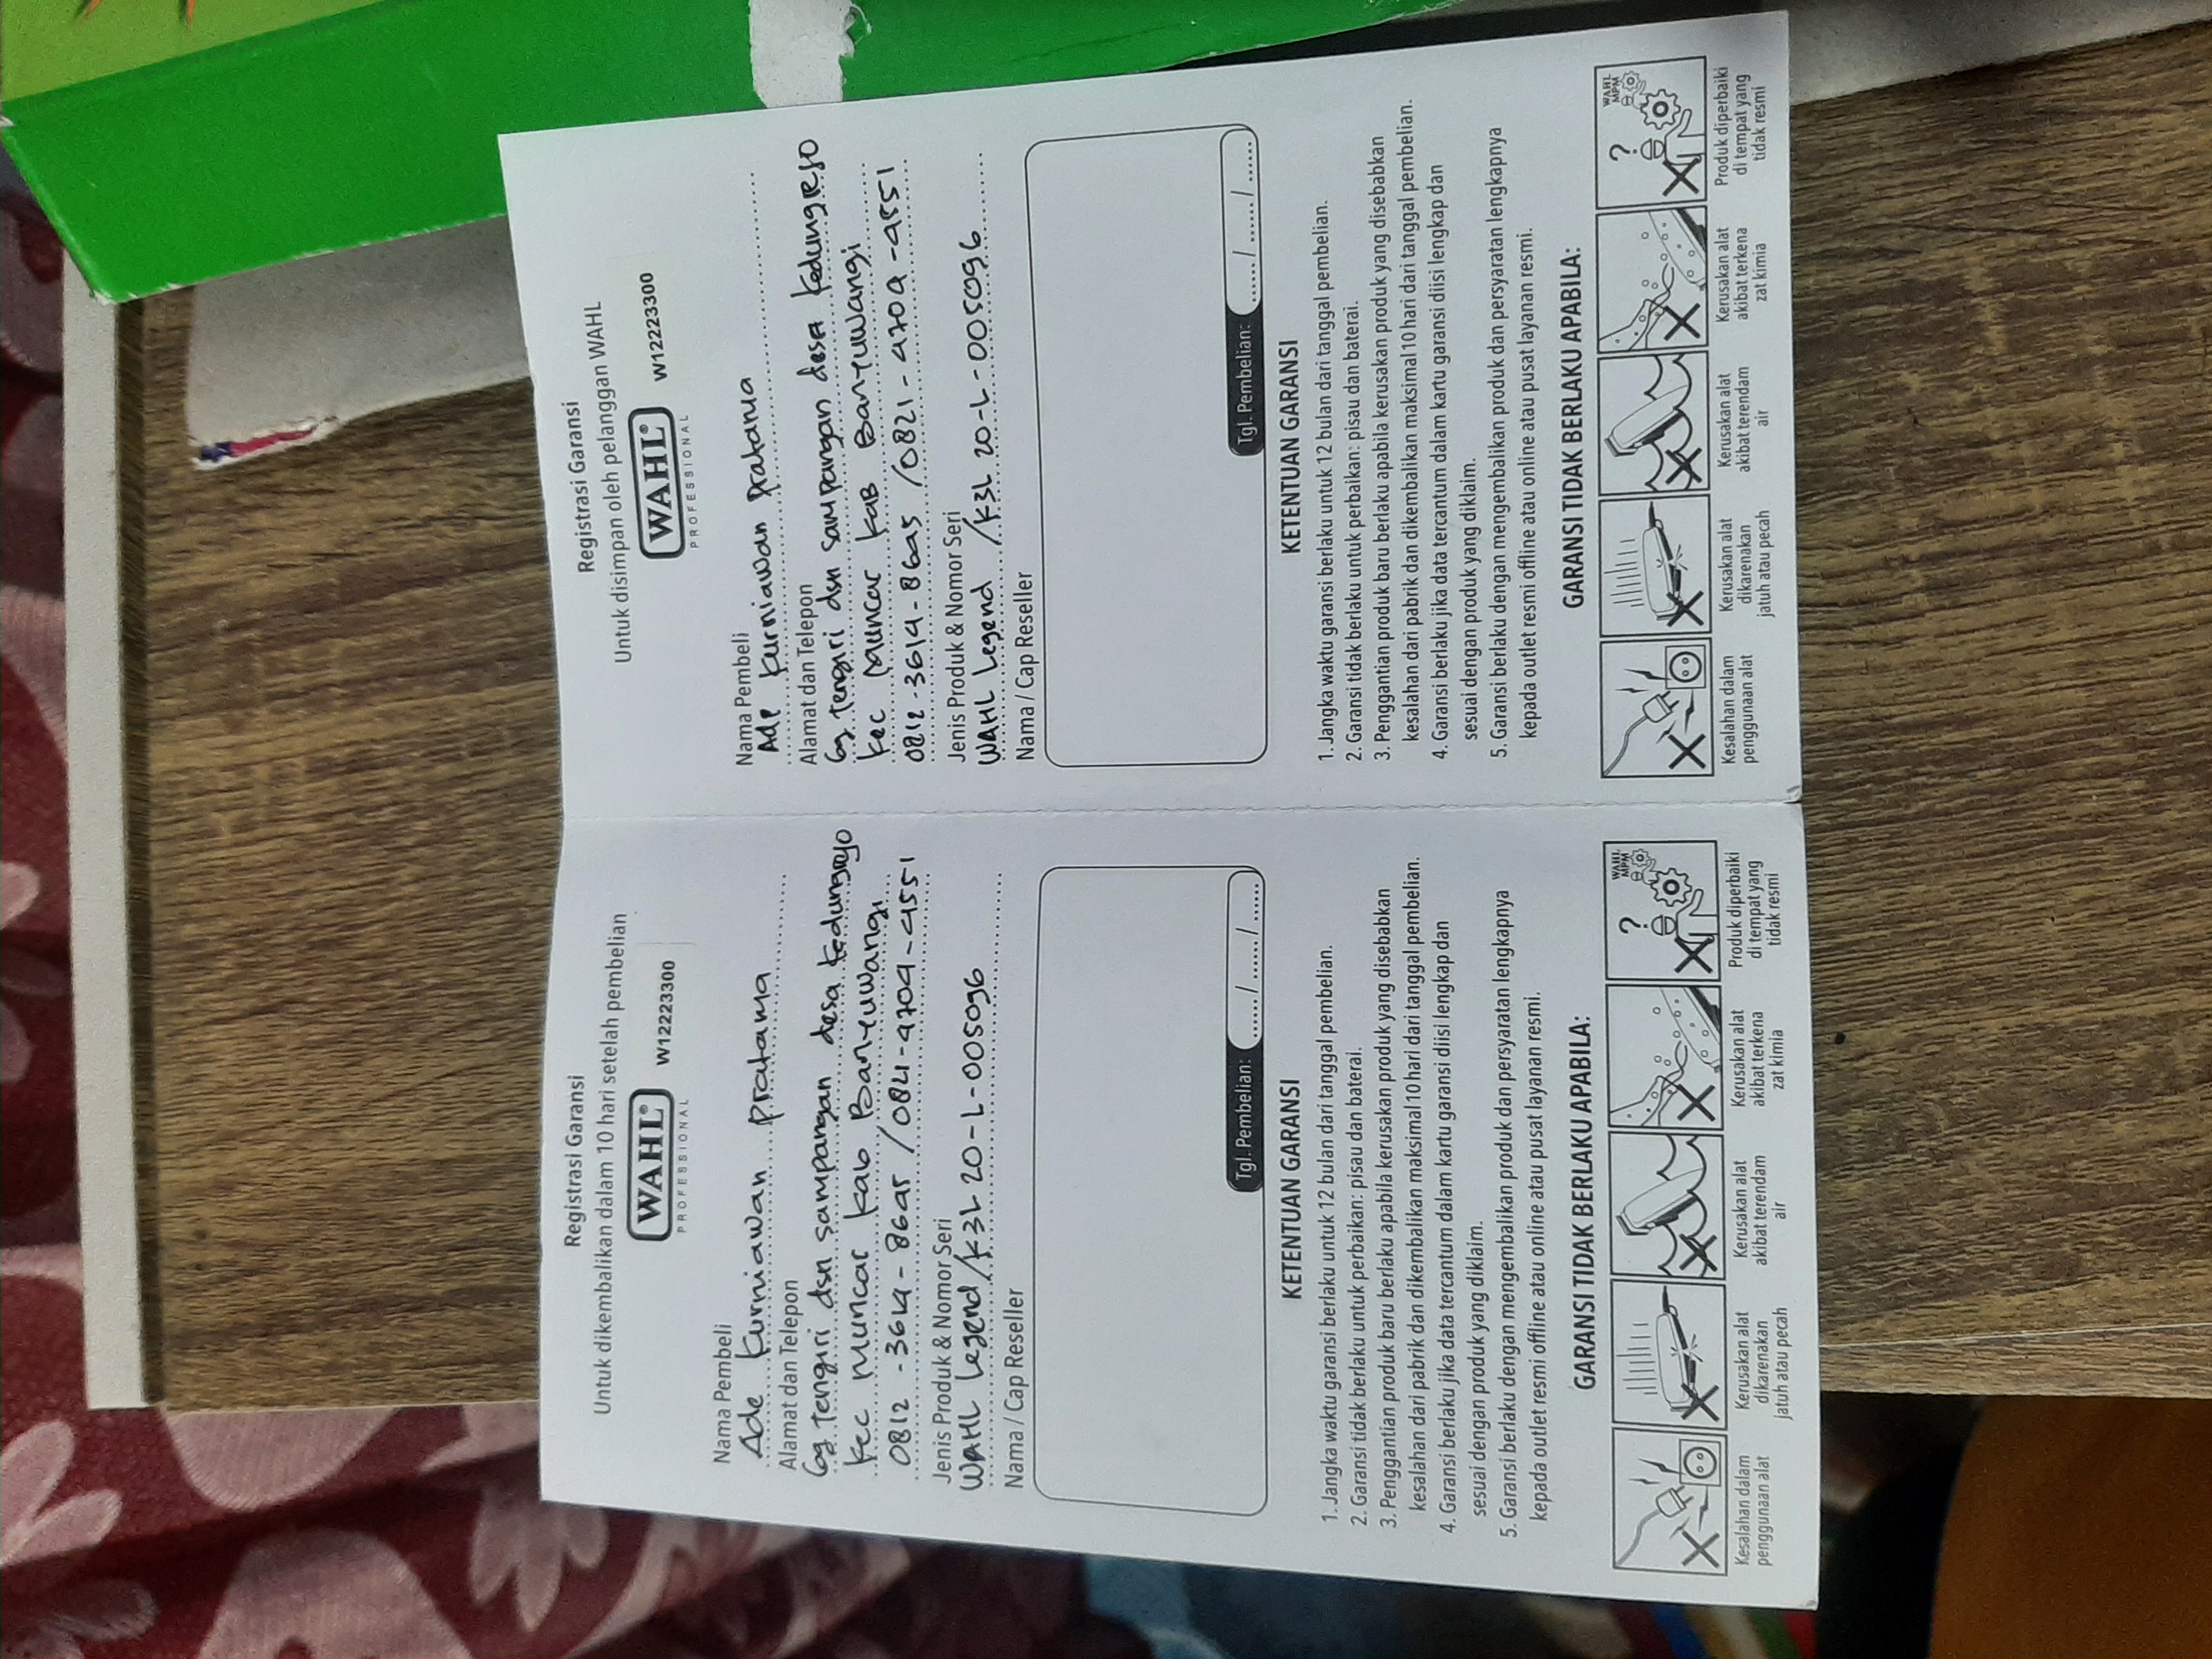 Registrasi Garansi
Untuk dikembalikan dalam 10 hari setelah pembelian
WAHL® W12223300
PROFESSIONAL
Nama Pembeli
Ade Kurniawan Pratama
Alamat dan Telepon
Gg Tengiri dsn sampangan desa Kedungrejo
Kec Muncar Kab Banyuwangi
0812 - 3614 - 8645 / 0821-4704-4551
Jenis Produk & Nomor Seri
WAHL Legend /K3L 20-L-005096
Nama / Cap Reseller
Tgl. Pembelian: ...... / ...... / ......
KETENTUAN GARANSI
1. Jangka waktu garansi berlaku untuk 12 bulan dari tanggal pembelian.
2. Garansi tidak berlaku untuk perbaikan: pisau dan baterai.
3. Penggantian produk baru berlaku apabila kerusakan produk yang disebabkan
kesalahan dari pabrik dan dikembalikan maksimal 10 hari dari tanggal pembelian.
4. Garansi berlaku jika data tercantum dalam kartu garansi diisi lengkap dan
sesuai dengan produk yang diklaim.
5. Garansi berlaku dengan mengembalikan produk dan persyaratan lengkapnya
kepada outlet resmi offline atau online atau pusat layanan resmi.
GARANSI TIDAK BERLAKU APABILA:
?
WAHL
MPM
Kesalahan dalam
penggunaan alat
Kerusakan alat
dikarenakan
jatuh atau pecah
Kerusakan alat
akibat terendam
air
Kerusakan alat
akibat terkena
zat kimia
Produk diperbaiki
di tempat yang
tidak resmi
Registrasi Garansi
Untuk disimpan oleh pelanggan WAHL
WAHL® W12223300
PROFESSIONAL
Nama Pembeli
Ade Kurniawan Pratama
Alamat dan Telepon
Gg Tengiri dsn sampangan desa Kedungrejo
Kec Muncar Kab Banyuwangi
0812-3614-8645 /0821-4704-4551
Jenis Produk & Nomor Seri
WAHL Legend /K3L 20-L-005096
Nama / Cap Reseller
Tgl. Pembelian: ...... / ...... / ......
KETENTUAN GARANSI
1. Jangka waktu garansi berlaku untuk 12 bulan dari tanggal pembelian.
2. Garansi tidak berlaku untuk perbaikan: pisau dan baterai.
3. Penggantian produk baru berlaku apabila kerusakan produk yang disebabkan
kesalahan dari pabrik dan dikembalikan maksimal 10 hari dari tanggal pembelian.
4. Garansi berlaku jika data tercantum dalam kartu garansi diisi lengkap dan
sesuai dengan produk yang diklaim.
5. Garansi berlaku dengan mengembalikan produk dan persyaratan lengkapnya
kepada outlet resmi offline atau online atau pusat layanan resmi.
GARANSI TIDAK BERLAKU APABILA:
?
WAHL
MPM
Kesalahan dalam
penggunaan alat
Kerusakan alat
dikarenakan
jatuh atau pecah
Kerusakan alat
akibat terendam
air
Kerusakan alat
akibat terkena
zat kimia
Produk diperbaiki
di tempat yang
tidak resmi